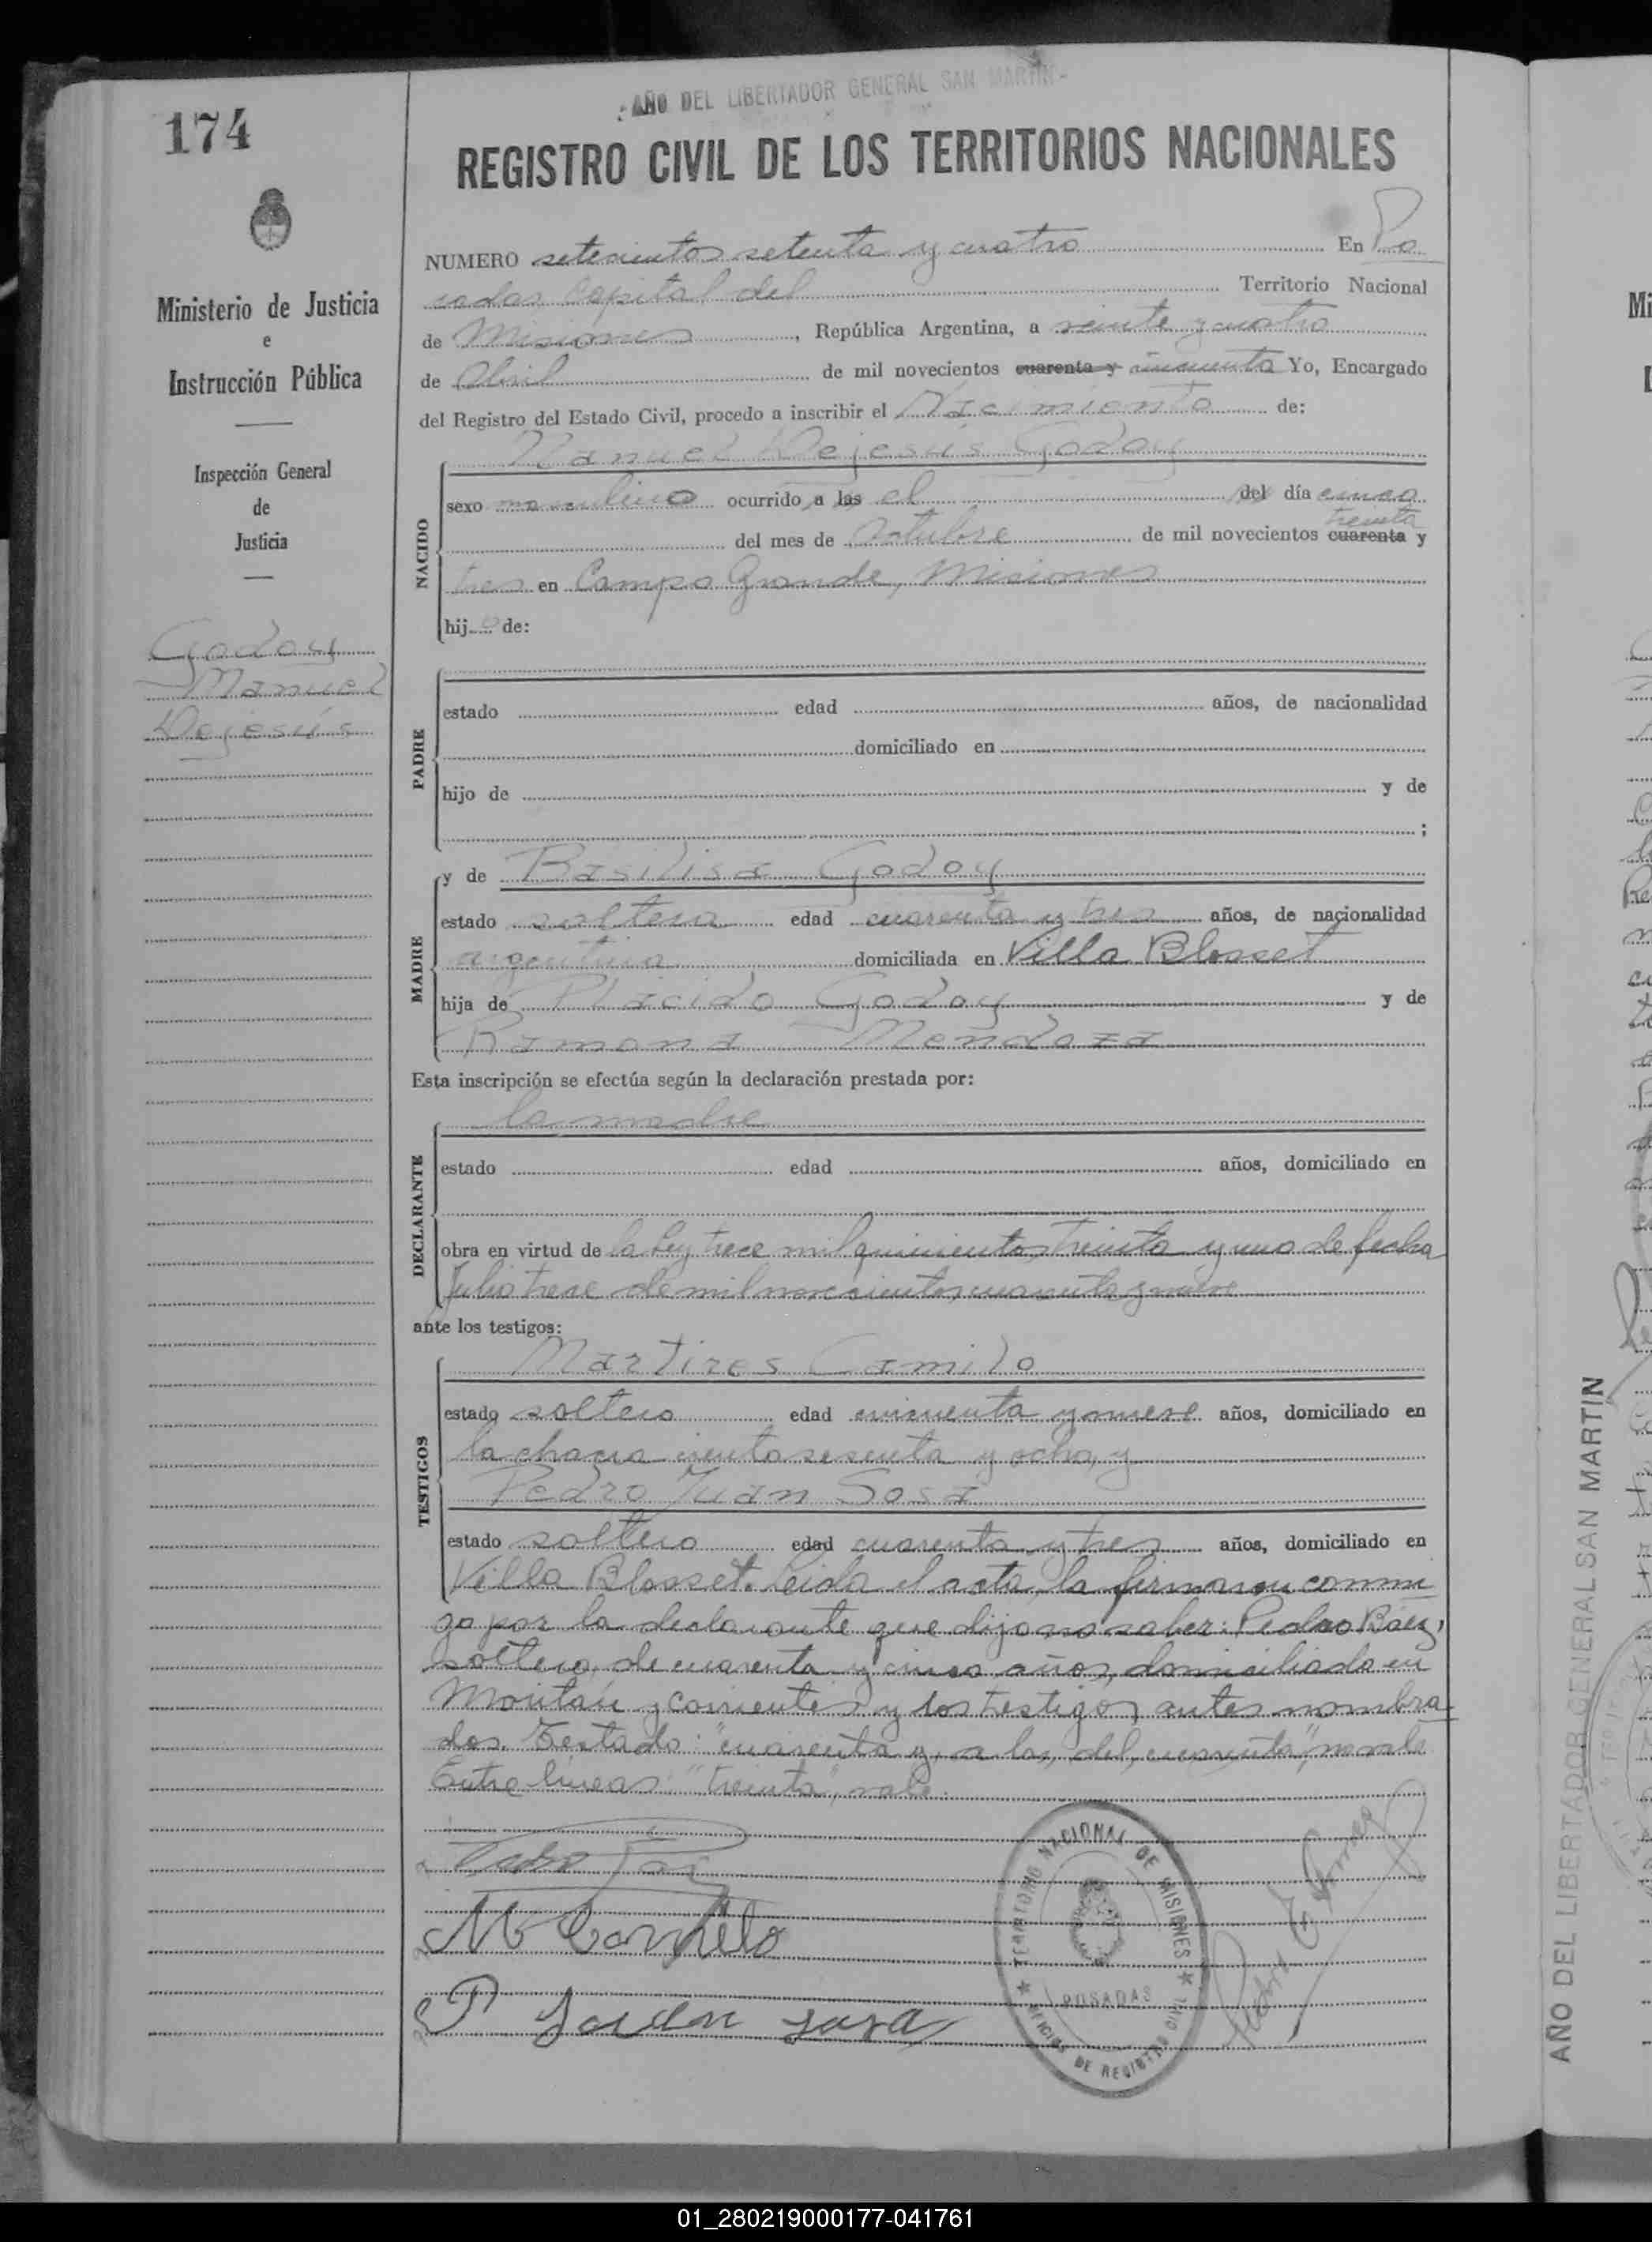 174
-AÑO DEL LIBERTADOR GENERAL SAN MARTIN-
REGISTRO CIVIL DE LOS TERRITORIOS NACIONALES
Ministerio de Justicia
e
Instrucción Pública
Inspección General
de
Justicia
Godoy
Manuel
Dejesús
NUMERO setecientos setenta y cuatro En Po
sadas Capital del Territorio Nacional
de Misiones, República Argentina, a veinte y cuatro
de Abril de mil novecientos cuarenta y cincuenta Yo, Encargado
del Registro del Estado Civil, procedo a inscribir el Nacimiento de:
Manuel Dejesús Godoy
NACIDO
sexo masculino ocurrido a las el del día cinco
treinta
del mes de Octubre de mil novecientos cuarenta y
tres en Campo Grande, Misiones
hijo de:
PADRE
estado edad años, de nacionalidad
domiciliado en
hijo de y de
;
MADRE
y de Basilisa Godoy
estado soltera edad cuarenta y tres años, de nacionalidad
argentina domiciliada en Villa Blosset
hija de Placido Godoy y de
Ramona Mendoza
Esta inscripción se efectúa según la declaración prestada por:
la madre
DECLARANTE
estado edad años, domiciliado en
obra en virtud de la Ley trece mil quinientos treinta y uno de fecha
Julio trece de mil novecientos cuarenta y nueve
ante los testigos:
TESTIGOS
Martires Camilo
estado soltero edad cincuenta y nueve años, domiciliado en
la chacra ciento sesenta y ocho, y
Pedro Juan Sosa
estado soltero edad cuarenta y tres años, domiciliado en
Villa Blosset. Leida el acta, la firmaron conmi
go por la declarante que dijo no saber: Pedro Báez,
soltero, de cuarenta y cinco años, domiciliado en
Moritán y Corrientes y los testigos antes nombra
dos. Testado: "cuarenta y, a las, del, cuarenta", no vale
Entre lineas: "treinta", vale.
M Camilo
P Juan sosa
TERRITORIO NACIONAL DE MISIONES
POSADAS
OFICINA DE REGISTRO CIVIL
AÑO DEL LIBERTADOR GENERAL SAN MARTIN
01_280219000177-041761